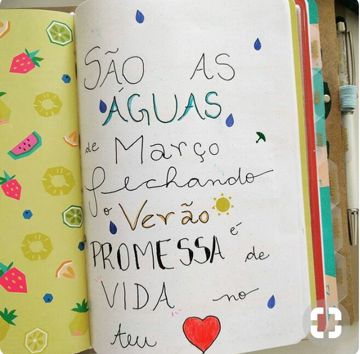 SÃO AS
ÁGUAS
de Março
fechando
o Verão
é
PROMESSA de
VIDA no
teu